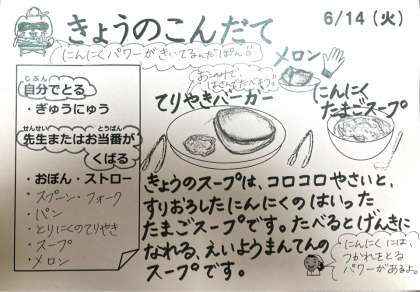 きょうのこんだて
6/14（火）
にんにくパワーがきいてるんだぽん
メロン
自分でとる
じぶん
・ぎゅうにゅう
先生またはお当番が
せんせい とうばん
くばる
・おぼん・ストロー
・スプーン・フォーク
・パン
・とりにくのてりやき
・スープ
・メロン
てりやきバーガー
にんにく
たまごスープ
きょうのスープは、コロコロやさいと、
すりおろしたにんにくのはいった
たまごスープです。たべるとげんきに
なれる、えいようまんてんの
スープです。
にんにくには、
つかれをとる
パワーがあるよ。